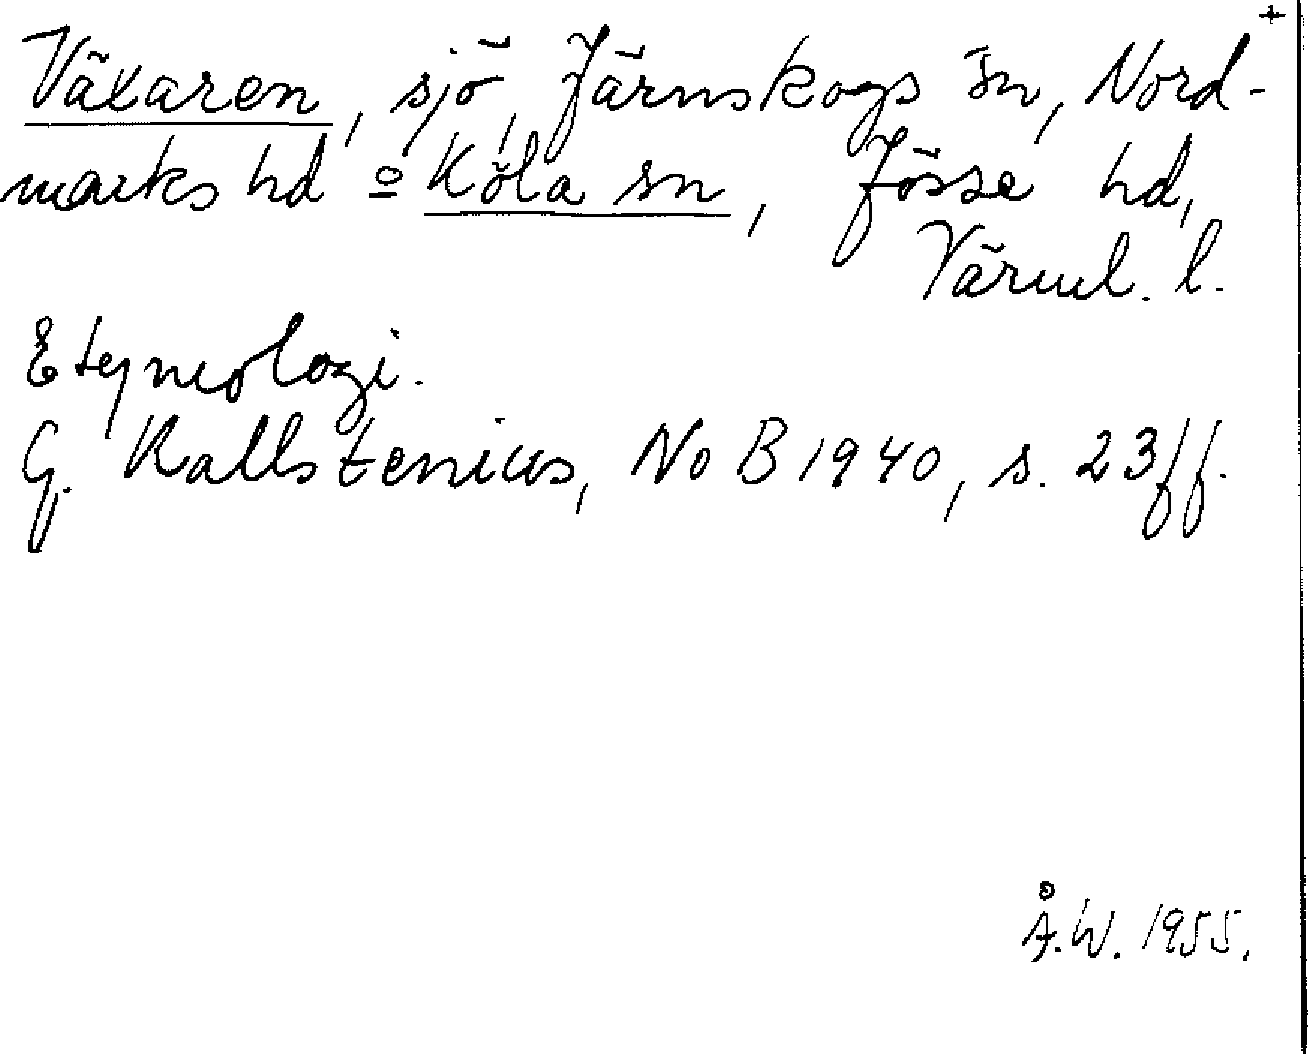 +
Växaren, sjö, Järnskogs sn, Nord-
marks hd o Köla sn, Jösse hd,
Värml. l.
Etymologi.
G. Kallstenius, NoB 1940, s. 23ff.
Å.W. 1955.